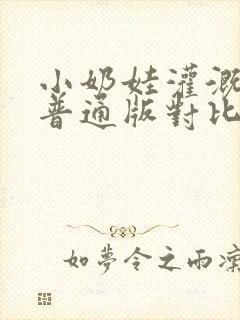 小奶娃灌溉
普通版對比
如夢令之雨凜